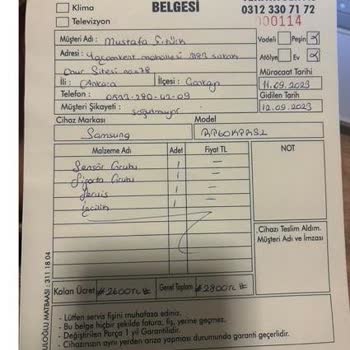 Klima
BELGESİ
Televizyon
0312 330 71 72
000114
Müşteri Adı : Mustafa
Vadeli Peşin
Adresi :
Atölye Ev
Sitesi no:78
Müracaat Tarihi
İli : Ankara İlçesi : Çankaya
11.09.2023
Telefon :
Gidilen Tarih
Müşteri Şikayeti : soğutmuyor
12.09.2023
Cihaz Markası Model
Samsung
Malzeme Adı Adet Fiyat TL NOT
Sensör Grubu 1 —
Sigorta Grubu 1 —
Servis 1 —
İşçilik 1 —
Cihazı Teslim Aldım.
Müşteri Adı ve İmzası
Kalan Ücret #2600TL Genel Toplam #2800TL
- Lütfen servis fişini muhafaza ediniz.
- Bu belge hiçbir şekilde fatura, fiş, yerine geçmez.
- Değiştirilen Parça 1 yıl Garantilidir.
- Cihazınızın aynı yerden arıza yapması durumunda garanti geçerlidir.
ULOĞLU MATBAASI : 311 18 04